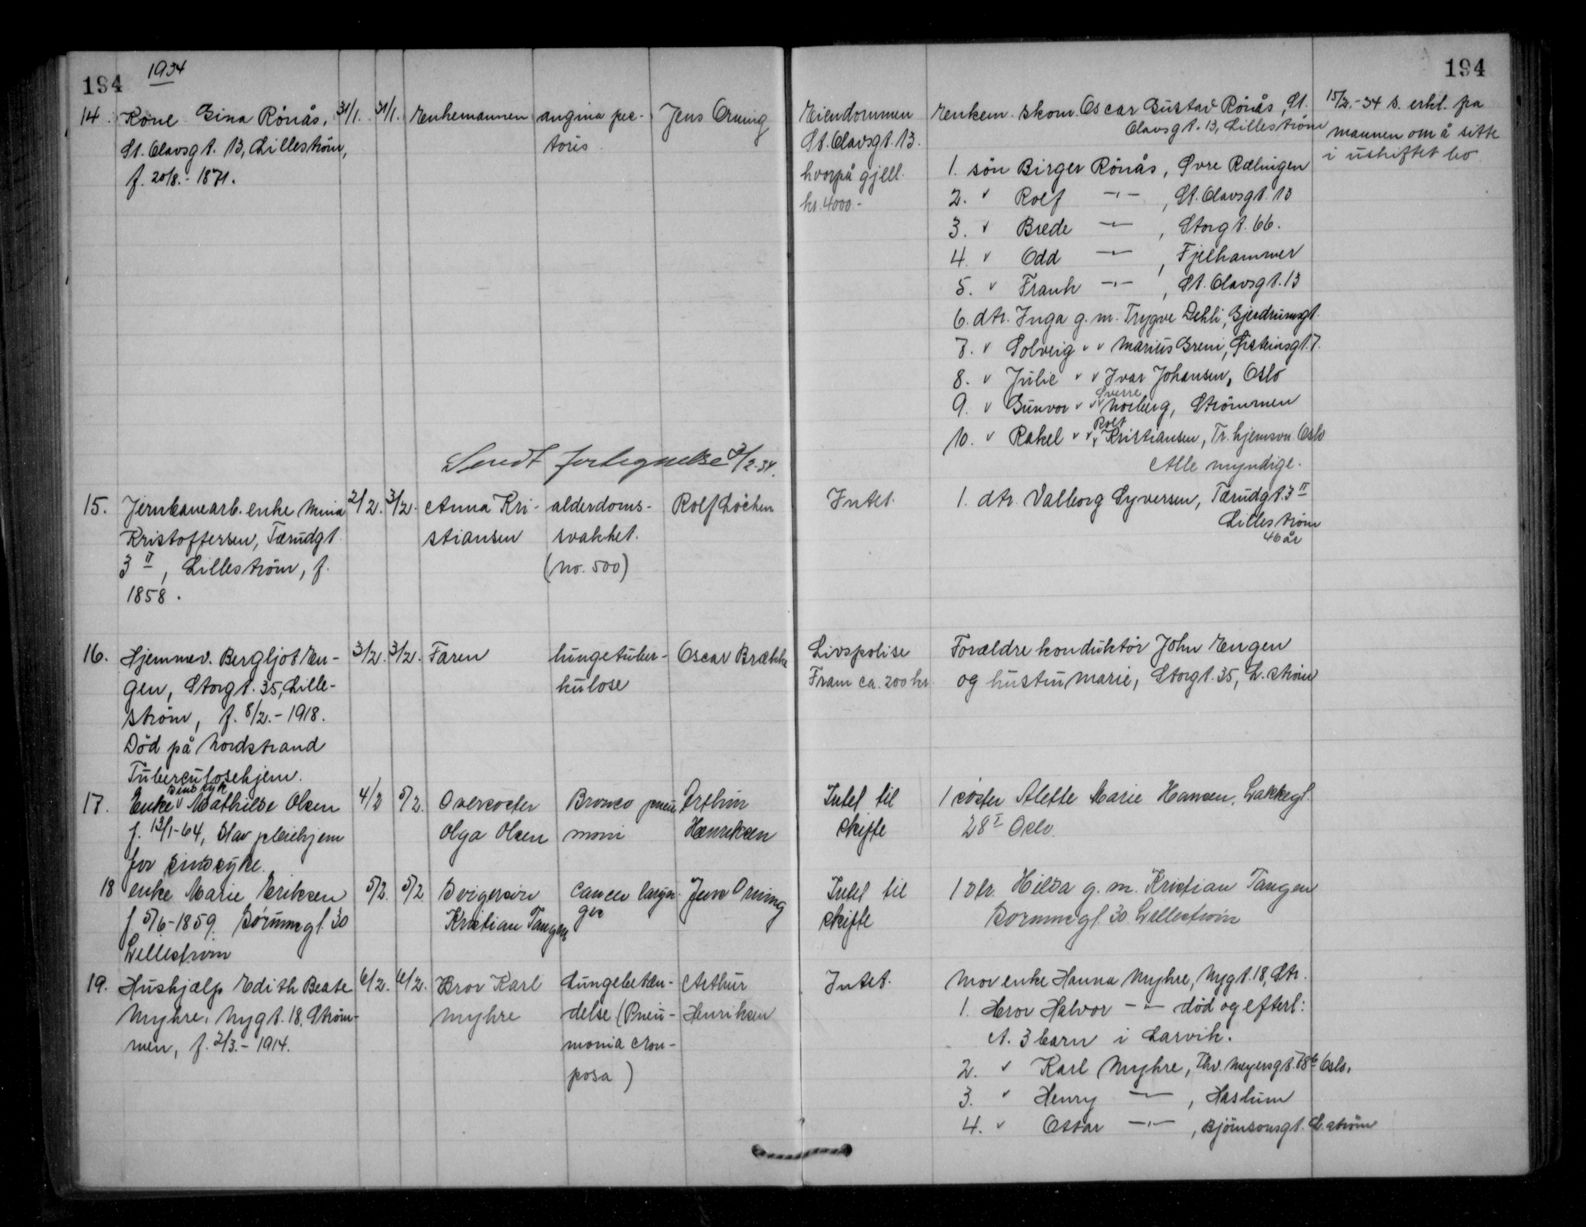 194
1934
194
14. Kone Gina Rönås,
St. Olavsgt. 13, Lilleström,
f. 20/8.-1871.
31/1.
31/1.
Enkemannen
angina pec-
toris
Jens Orning
Eiendommen
St. Olavsgt. 13.
hvorpå gjeld
kr. 4000.-
Enkem. skom. Oscar Gustav Rönås, St.
Olavsgt. 13, Lilleström
1. sön Birger Rönås, Övre Rælingen
2. " Rolf -"- , St. Olavsgt. 13
3. " Brede -"- , Storgt. 66.
4. " Odd -"- , Fjelhammer
5. " Frank -"- , St. Olavsgt. 13
6. dtr. Inga g.m. Trygve Dehli, Gjerdrumsgt.
7. " Solveig " " Marius Greni, Öisteinsgt. 7.
8. " Julie " " Ivar Johansen, Oslo
9. " Gunvor " " Sverre Norberg, Strömmen
10. " Rakel " " Rolf Kristiansen, Tr.hjemsvn Oslo
Alle myndige.
15/2.-34 s. erkl. fra
mannen om å sitte
i uskiftet bo.
Sendt fortegnelse 3/2-34.
15. Jernbanearb. enke Mina
Kristoffersen, Tærudgt
3 II, Lilleström, f.
1858.
2/2.
3/2.
Anna Kri-
stiansen
alderdoms-
svakhet.
(no. 500)
Rolf Lochen
Intet.
1. dtr. Valborg Syversen, Tærudgt. 3 II
Lilleström
46 år
16. Hjemmev. Bergljot En-
gen, Storgt. 35, Lille-
ström, f. 8/2.-1918.
Död på Nordstrand
Tuberculosehjem.
3/2.
3/2.
Faren
lungetuber-
kulose
Oscar Brække
Livspolise
Fram ca. 200 kr.
Forældre konduktör John Engen
og hustru Marie, Storgt. 35, L.ström
17. Enke Mathilde Olsen
f. 13/1-64, pleiehjem
for sindssyke.
4/2
5/2.
Olga Olsen
Bronco pneu
moni
Arthur
Henriksen
Intet til
skifte
1 söster Alette Marie Hansen, Lakkegt.
28 I Oslo.
18 enke Marie Eriksen
f 5/6-1859. 30
Lilleström
5/2.
5/2
Svigersön
Kristian Tangen
Cancer laryn-
gis
Jens Orning
Intet til
skifte
1 dtr. Hilda g.m. Kristian Tangen
30 Lilleström
19. Hushjælp Edith Beate
Myhre, Nygt. 18, Ström-
men, f. 2/3.-1914.
6/2.
6/2.
Bror Karl
Myhre
Lungebeten-
delse (Pneu-
monia crou-
posa)
Arthur
Henriksen
Intet.
Mor enke Hanna Myhre, Nygt. 18, Str.
1. Bror Halvor -"- död og efterl:
3 barn i Larvik.
2. " Karl Myhre, Thv. Meyersgt. Oslo.
3. " Henry -"- , Haslum
4. " Oskar -"- , Björnsonsgt. L.ström